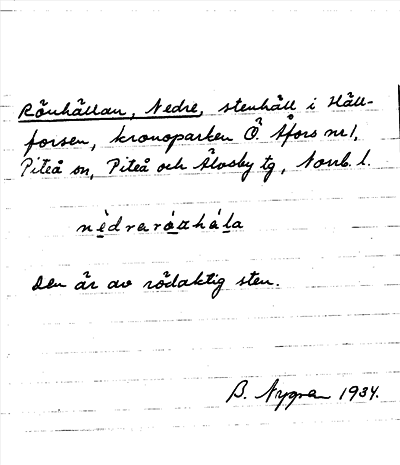 Rönhällan, Nedre, stenhäll i Häll-
forsen, kronoparken Ö. Åfors nr 1,
Piteå sn, Piteå och Älvsby tg, Norrb. l.
nèdrarózhála
Den är av rödaktig sten.
B. Nygren 1934.